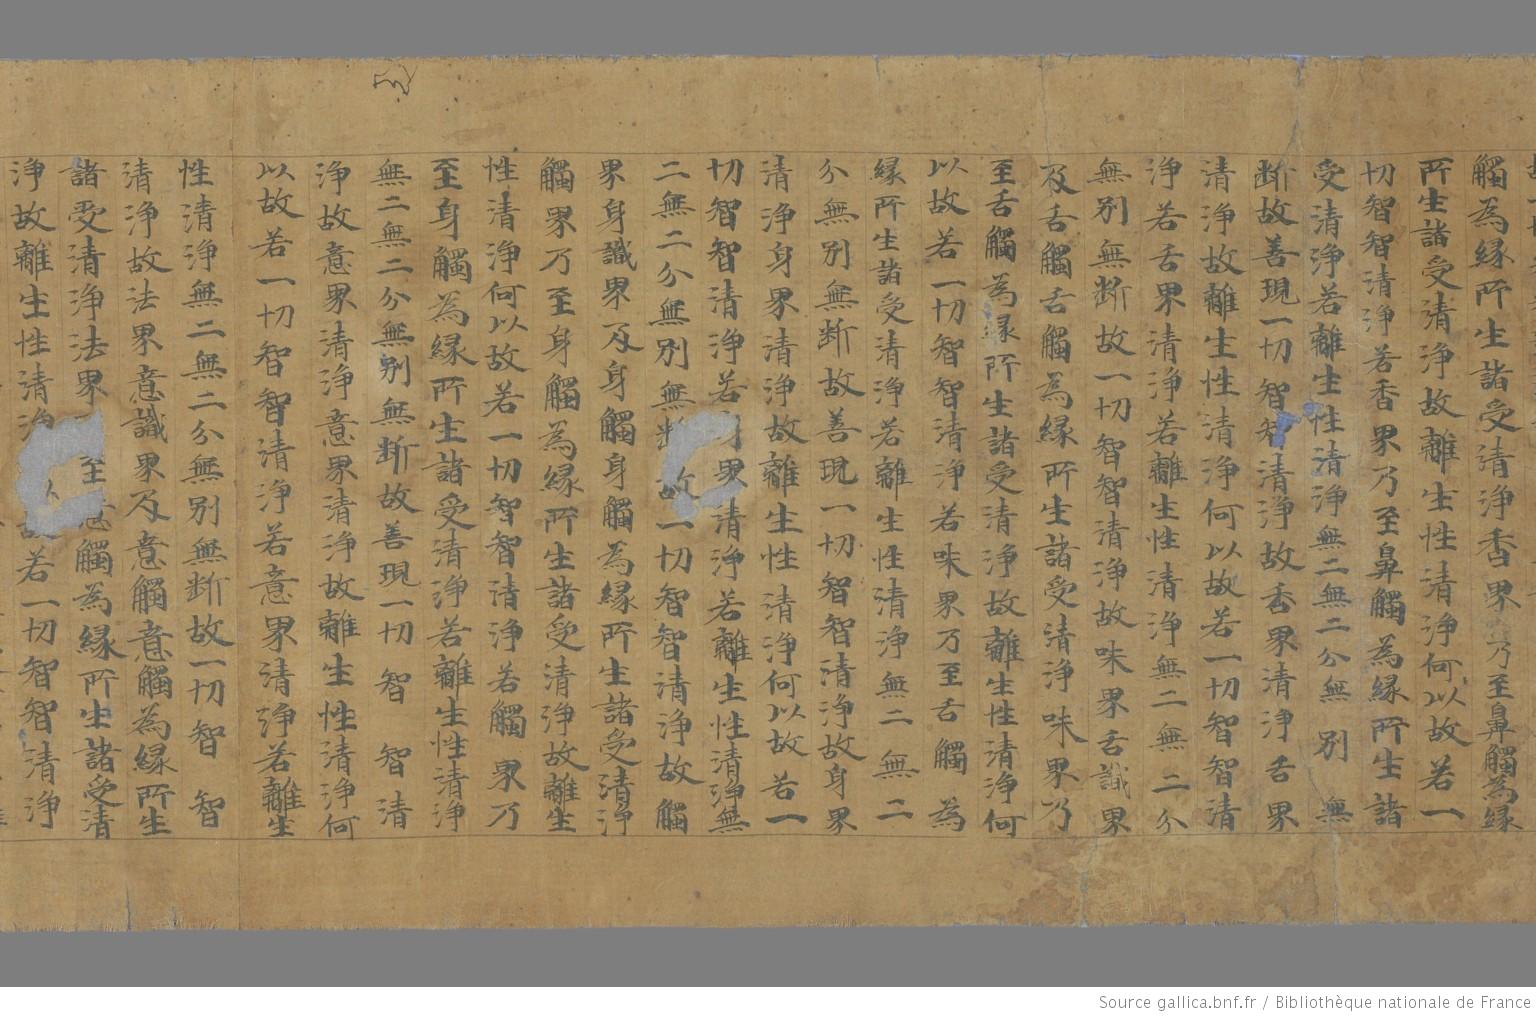 觸為緣所生諸受清淨香界乃至鼻觸為緣
所生諸受清淨故離生性清淨何以故若一
切智智清淨若香界乃至鼻觸為緣所生諸
受清淨若離生性清淨無二無二分無別無
斷故善現一切智智清淨故舌界清淨舌界
清淨故離生性清淨何以故若一切智智清
淨若舌界清淨若離生性清淨無二無二分
無別無斷故一切智智清淨故味界舌識界
及舌觸舌觸為緣所生諸受清淨味界乃
至舌觸為緣所生諸受清淨故離生性清淨何
以故若一切智智清淨若味界乃至舌觸為
緣所生諸受清淨若離生性清淨無二無二
分無別無斷故善現一切智智清淨故身界
清淨身界清淨故離生性清淨何以故若一
切智智清淨若界清淨若離生性清淨無
二無二分無別無斷故一切智智清淨故觸
界身識界及身觸身觸為緣所生諸受清淨
觸界乃至身觸為緣所生諸受清淨故離生
性清淨何以故若一切智智清淨若觸界乃
至身觸為緣所生諸受清淨若離生性清淨
無二無二分無別無斷故善現一切智智清
淨故意界清淨意界清淨故離生性清淨何
以故若一切智智清淨若意界清淨若離生
性清淨無二無二分無別無斷故一切智智
清淨故法界意識界及意觸意觸為緣所生
諸受清淨法界至意觸為緣所生諸受清
淨故離生性清淨以故若一切智智清淨
Source gallica.bnf.fr / Bibliothèque nationale de France